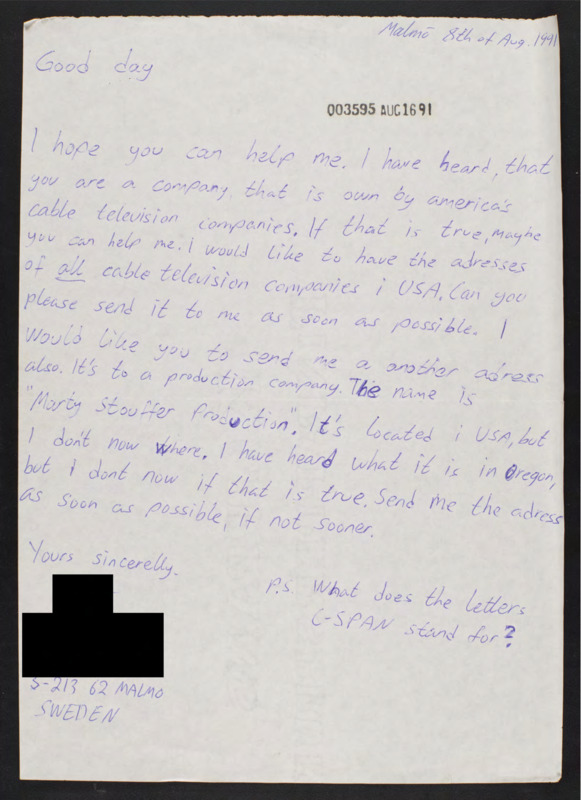 Malmö 8th of Aug. 1991
Good day
003595 AUG1691
I hope you can help me. I have heard, that
you are a company that is own by america's
cable television companies. If that is true, maybe
you can help me. I would like to have the adresses
of all cable television companies i USA. Can you
please send it to me as soon as possible. I
would like you to send me a another adress
also. It's to a production company. The name is
"Marty Stouffer Production". It's located i USA, but
I don't now where. I have heard what it is in Oregon,
but I dont now if that is true. Send me the adress
as soon as possible, if not sooner.
Yours sincerelly.
P.S. What does the letters
C-SPAN stand for?
S-213 62 MALMÖ
SWEDEN